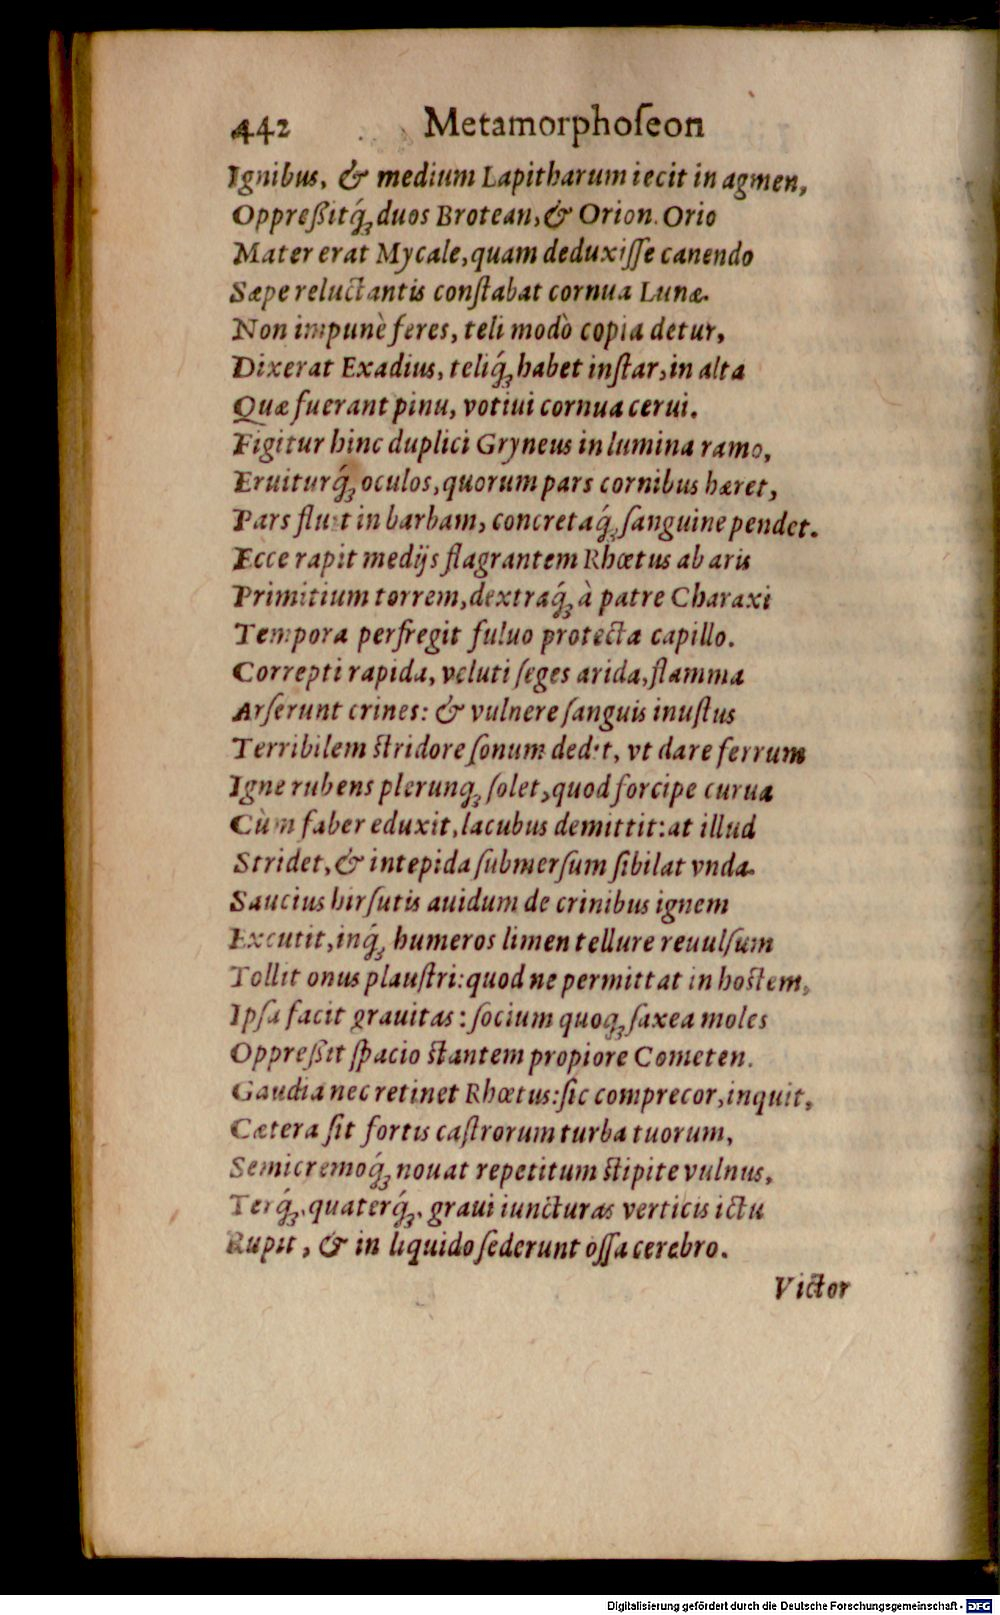 442 Metamorphoſeon
Ignibus, & medium Lapitharum iecit in agmen,
Oppreßitq́ꝫ duos Brotean, & Orion. Orio
Mater erat Mycale, quam deduxiſſe canendo
Sæpe reluctantis conſtabat cornua Lunæ.
Non impunè feres, teli modò copia detur,
Dixerat Exadius, teliq́ꝫ habet inſtar, in alta
Quæ fuerant pinu, votiui cornua cerui.
Figitur hinc duplici Gryneus in lumina ramo,
Eruiturq́ꝫ oculos, quorum pars cornibus hæret,
Pars fluit in barbam, concretaq́ꝫ ſanguine pendet.
Ecce rapit medijs flagrantem Rhœtus ab aris
Primitium torrem, dextraq́ꝫ à patre Charaxi
Tempora perfregit fuluo protecta capillo.
Correpti rapida, veluti ſeges arida, flamma
Arſerunt crines: & vulnere ſanguis inuſtus
Terribilem ſtridore ſonum dedit, vt dare ferrum
Igne rubens plerunqꝫ ſolet, quod forcipe curua
Cùm faber eduxit, lacubus demittit: at illud
Stridet, & in tepida ſubmerſum ſibilat vnda.
Saucius hirſutis auidum de crinibus ignem
Excutit, inq́ꝫ humeros limen tellure reuulſum
Tollit onus plauſtri: quod ne permittat in hoſtem,
Ipſa facit grauitas: ſocium quoqꝫ ſaxea moles
Oppreßit ſpacio ſtantem propiore Cometen.
Gaudia nec retinet Rhœtus: ſic comprecor, inquit,
Cætera ſit fortis caſtrorum turba tuorum,
Semicremoq́ꝫ nouat repetitum ſtipite vulnus,
Terq́ꝫ, quaterq́ꝫ, graui iuncturas verticis ictu
Rupit, & in liquido ſederunt oſſa cerebro.
Victor
Digitalisierung gefördert durch die Deutsche Forschungsgemeinschaft - DFG